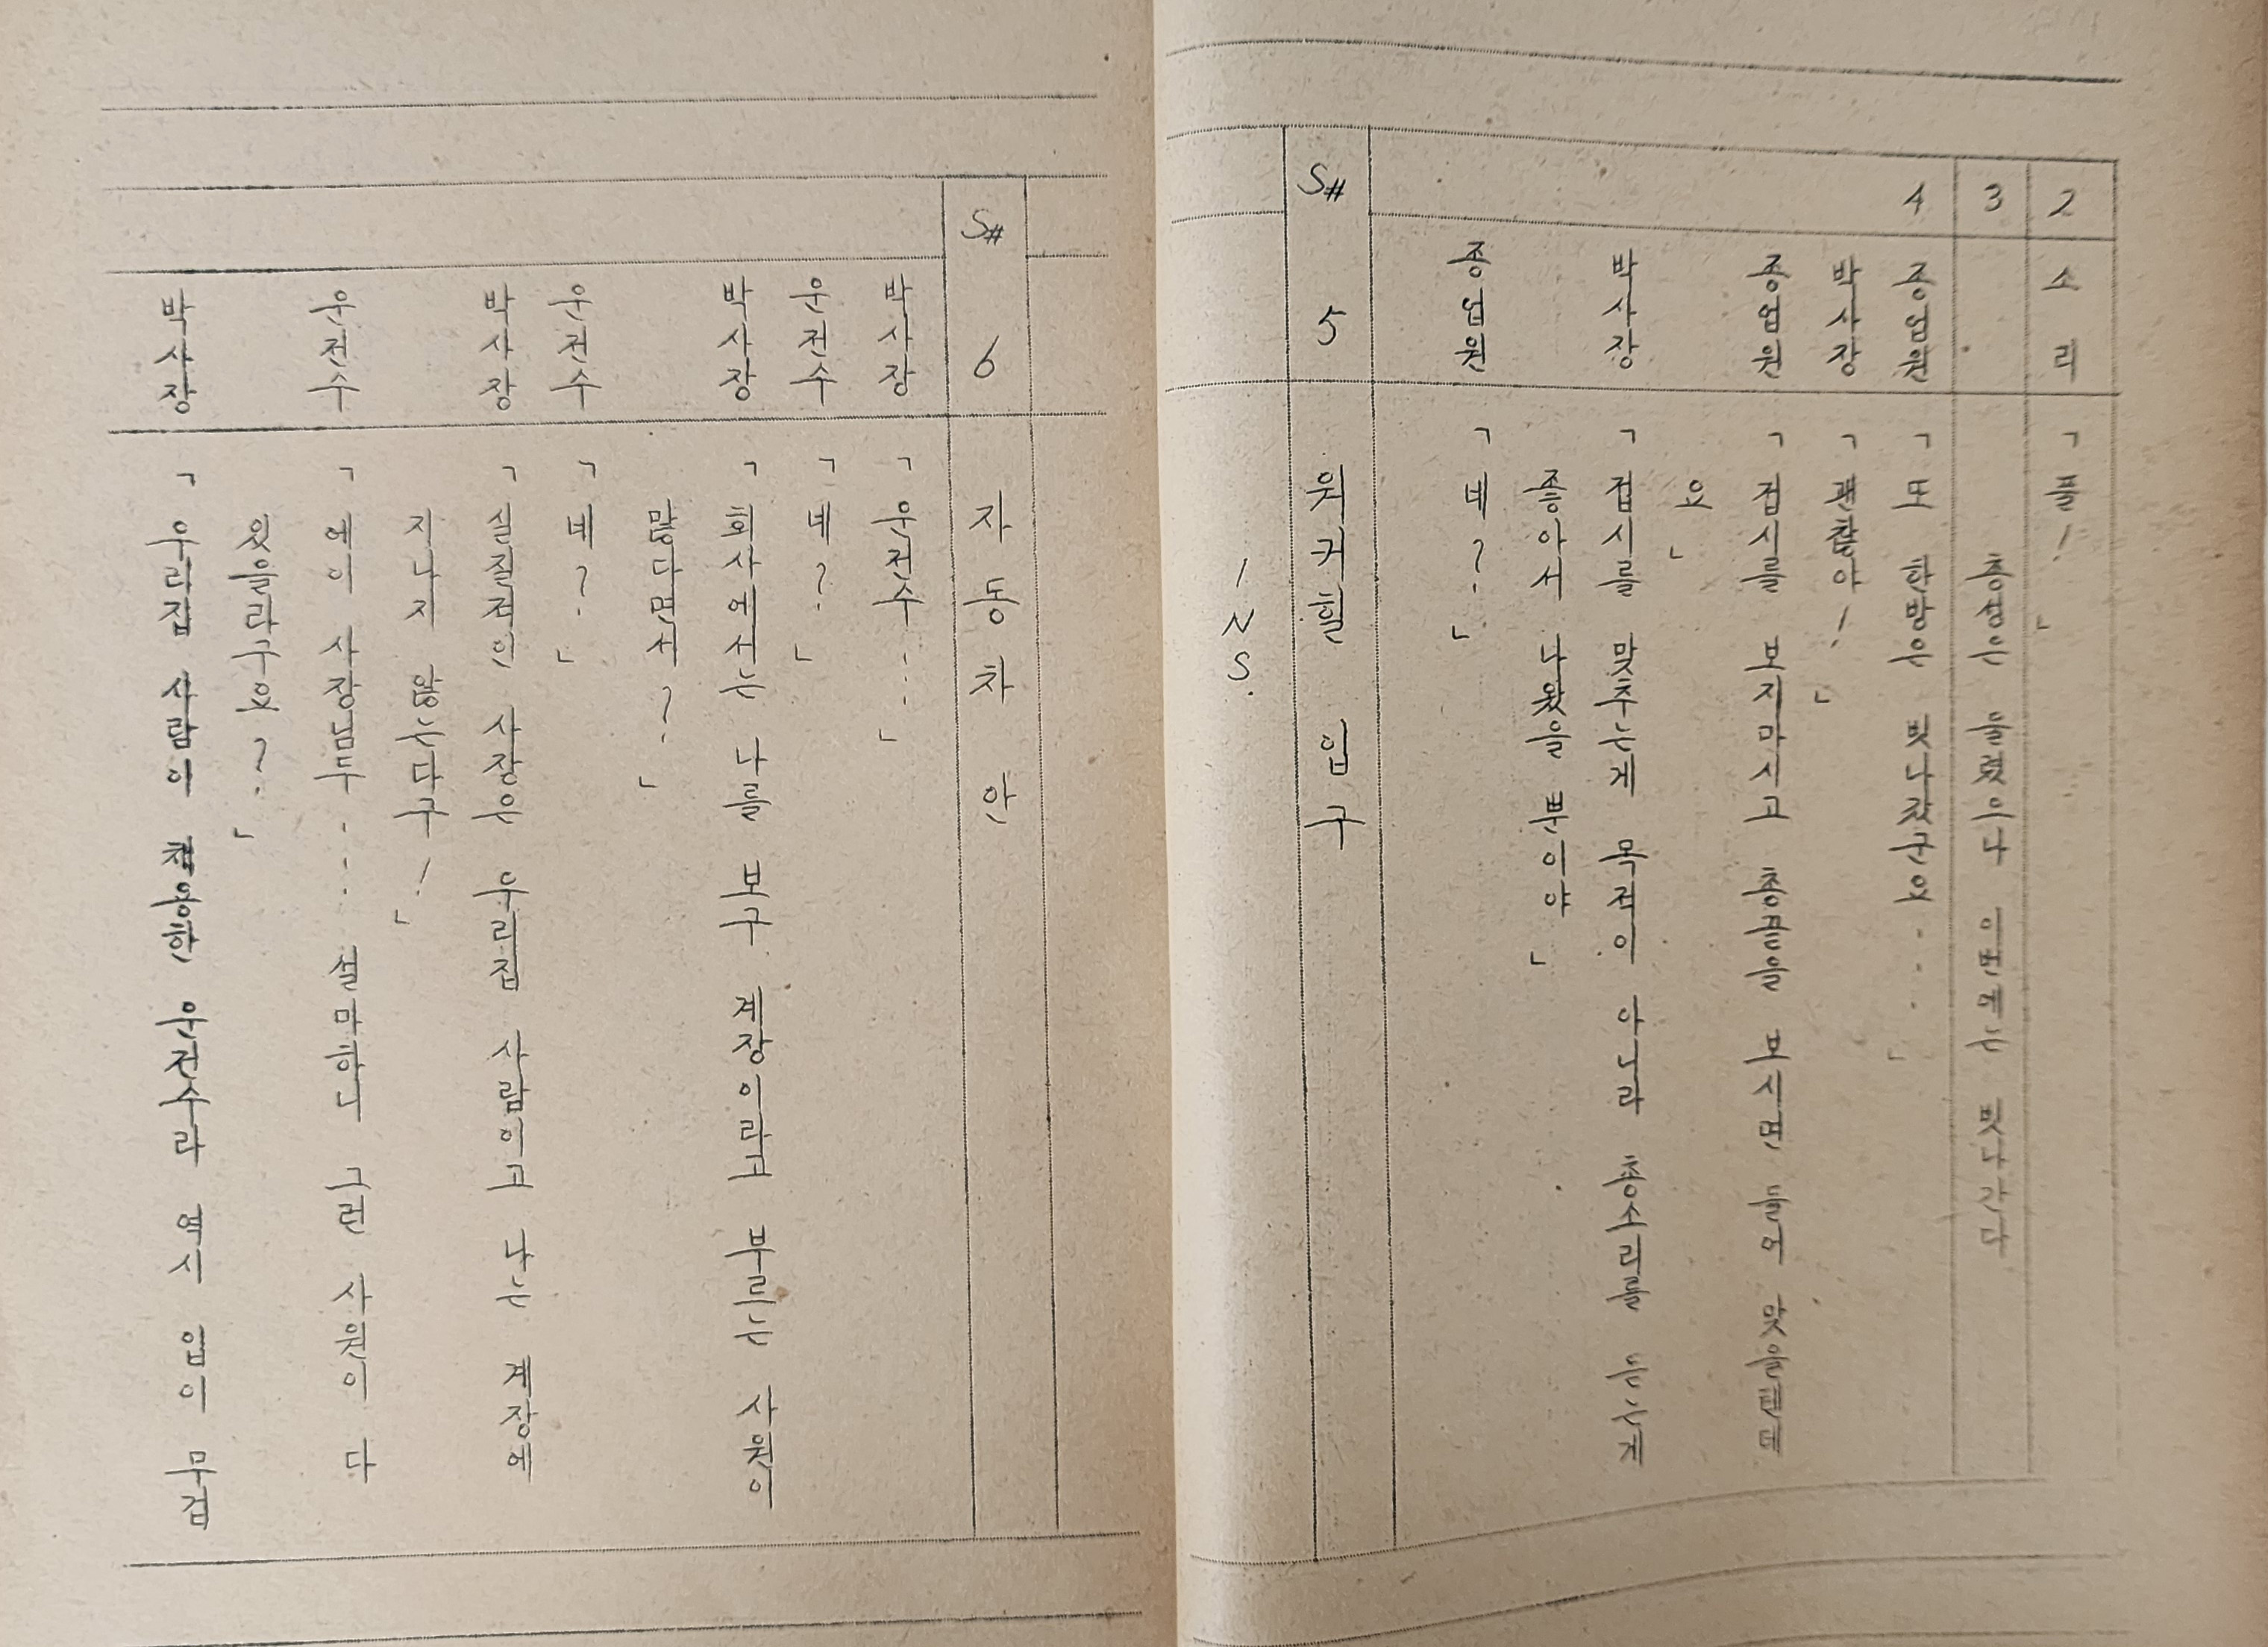 2 소리 「풀!」
3 총성은 울렸으나 이번에는 빗나간다
4 종업원 「또 한방은 빗나갔군요...」
박사장 「괜찮아!」
종업원 「접시를 보지마시고 총끝을 보시면 들어 맞을텐데
요」
박사장 「접시를 맞추는게 목적이 아니라 총소리를 듣는게
좋아서 나왔을 뿐이야」
종업원 「네?」
S# 5 워커힐 입구
INS.
S# 6 자동차 안
박사장 「운전수...」
운전수 「네?」
박사장 「회사에서는 나를 보구 계장이라고 부르는 사원이
많다면서?」
운전수 「네?」
박사장 「실질적인 사장은 우리집 사람이고 나는 계장에
지나지 않는다구!」
운전수 「에이 사장님두... 설마하니 그런 사원이 다
있을라구요?」
박사장 「우리집 사람이 채용한 운전수라 역시 입이 무겁